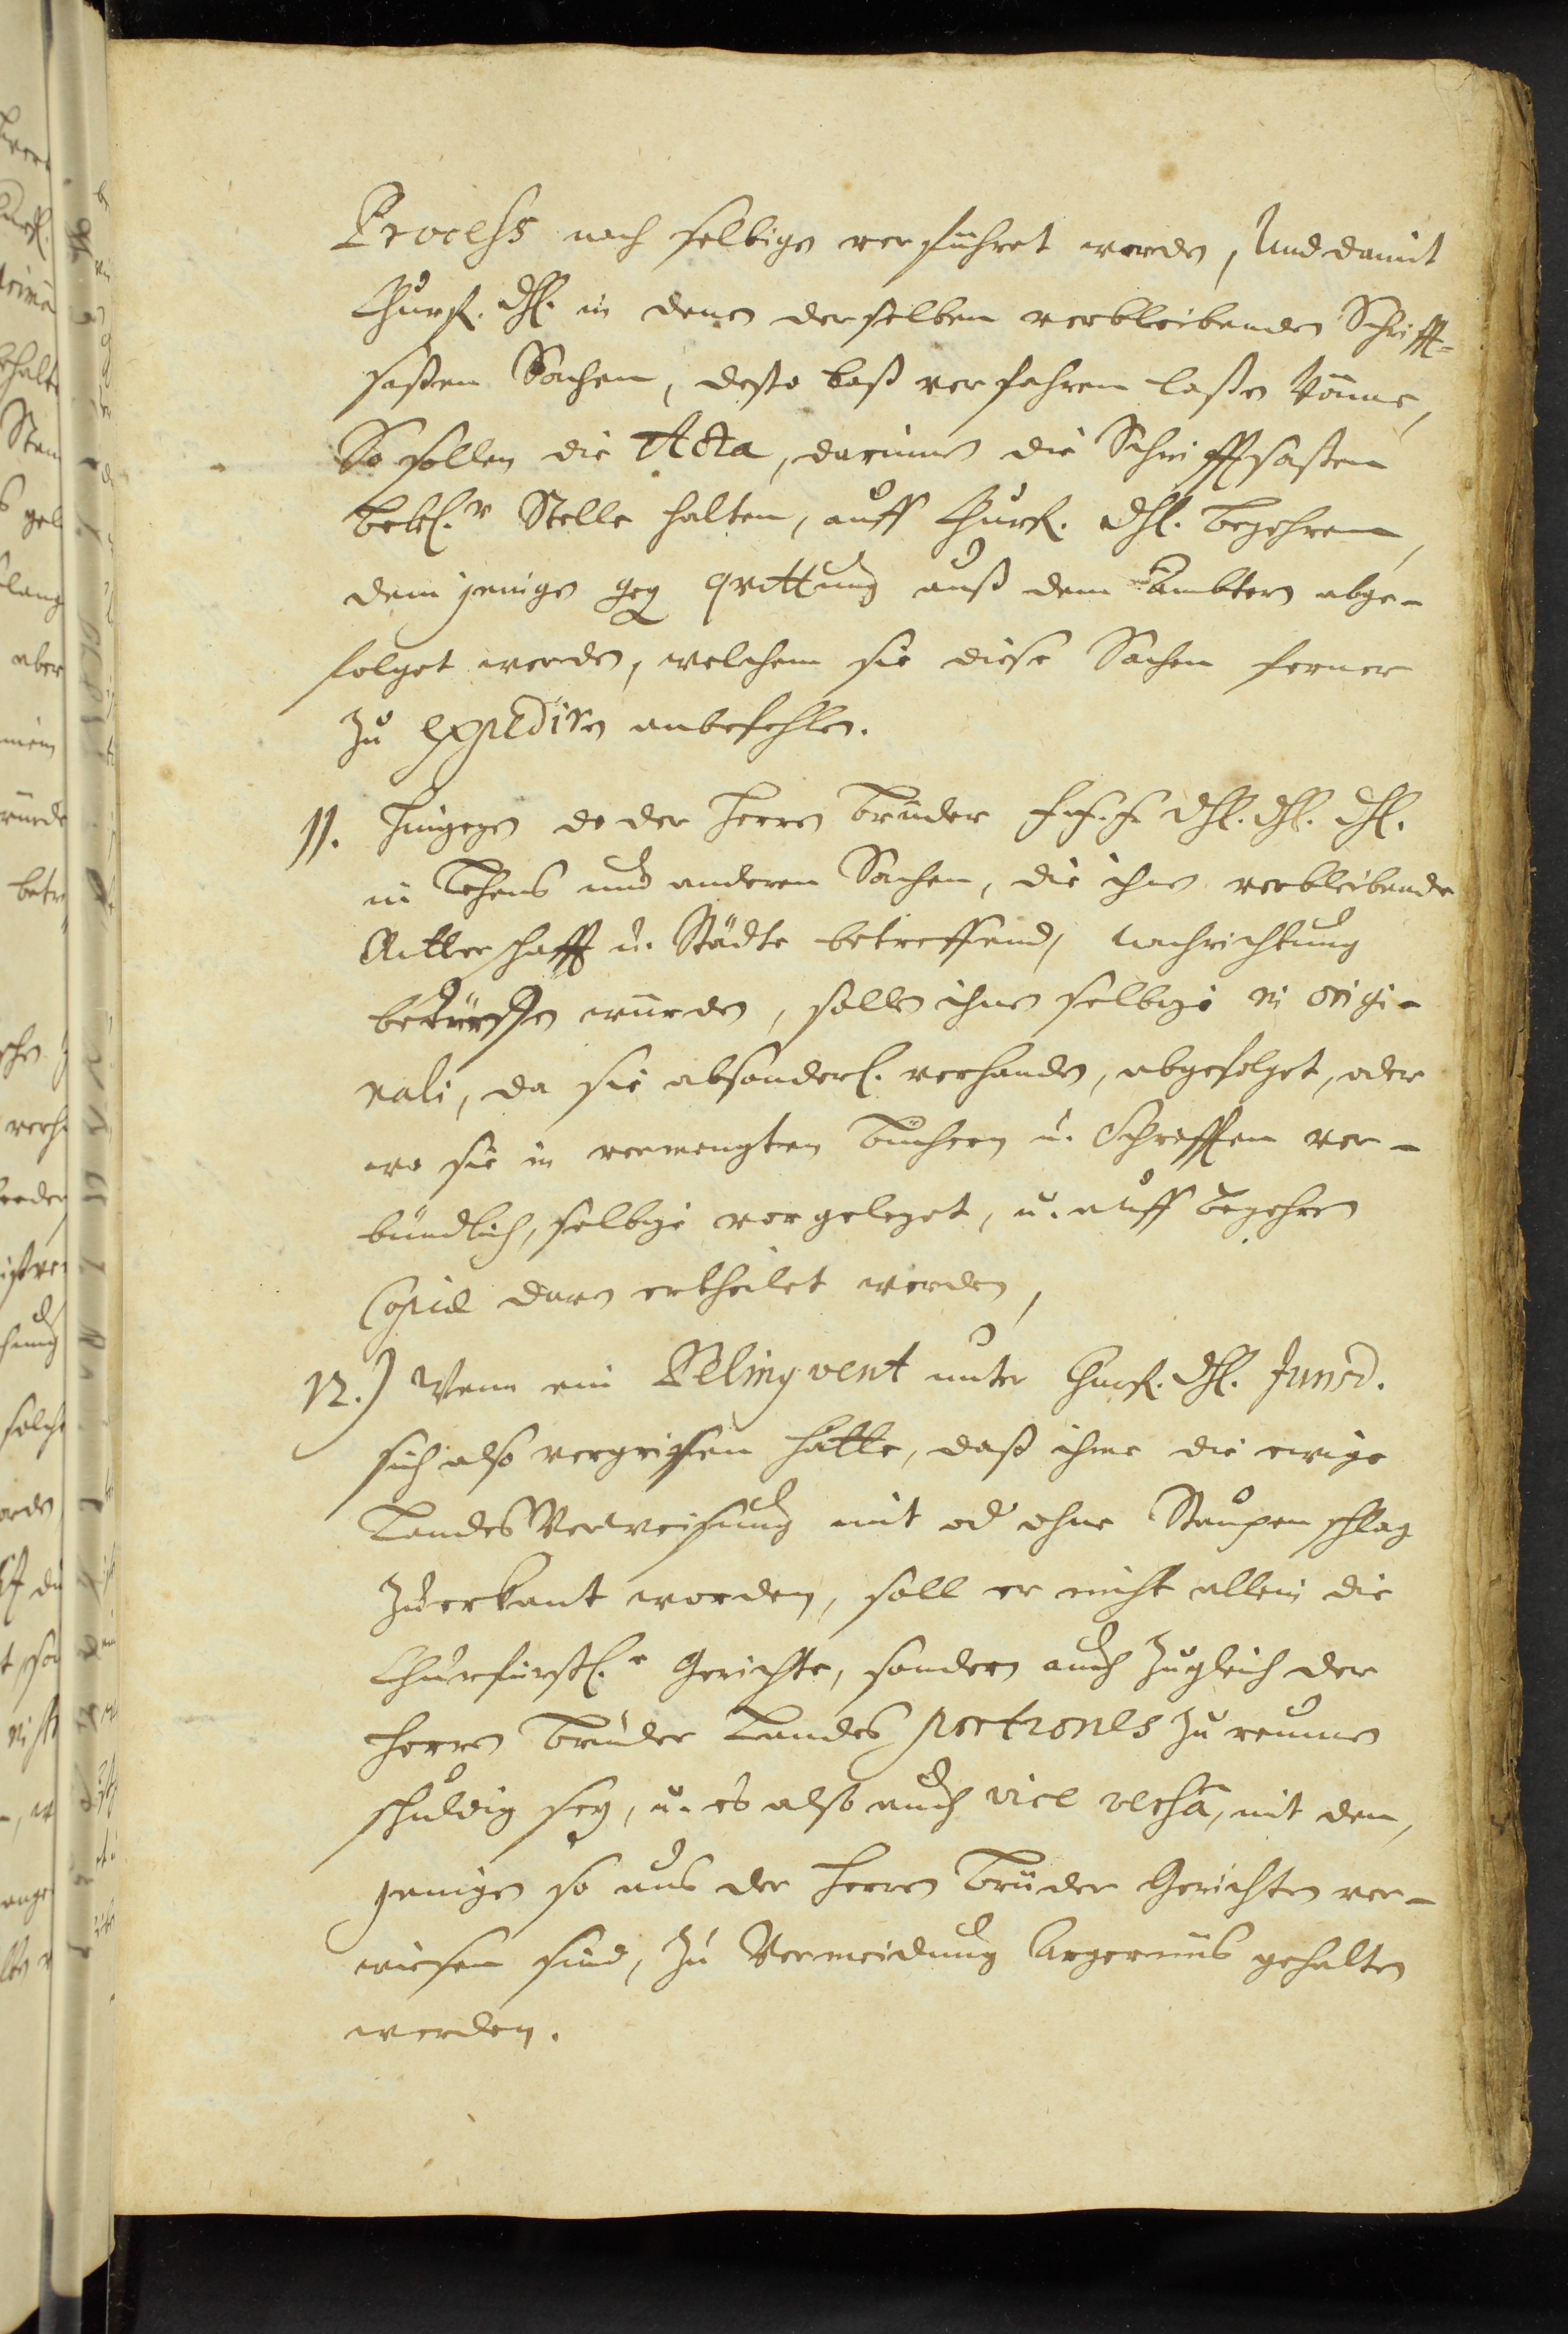 Process nach selbigen verführet werde, Und damit
Churf. Dhl. in denen derselben verbleibenden Schrifft-
saßen Sachen, desto baß verfahren laßen könne,
So sollen die Acta, darinnen die Schrifftsaßen
Bekl.r Stelle halten, auff Churf. Dhl. begehren,
demjenigen geg qvittung auß dem Ambtern abge-
folget werden, welchem sie diese Sachen ferner
zu expediren anbefehlen.
11. Hingegen do der Herren Brüder F. F. F. Dhl. Dhl. Dhl.
in Lehens und anderen Sachen, die ihnen verbleibende
Ritterschafft u. Städte betreffend, nachrichtung
bedürffen würden, sollen ihnen selbige in origi-
nali, da sie absonderl. verhanden, abgefolget, oder
wo sie in vermengten Büchern u. Schrifften ver-
bündlich, selbige vorgeleget, u. auff begehren
Copiae davon ertheilet werden,
12.) Wenn ein Delinqvent unter Churf. Dhl. Jurisd.
sich also vergriffen hätte, daß ihme die ewige
Landes Verweisung mit od ohne Staupenschlag
zuerkant worden, soll er nicht allein die
Churfürstl.e Gerichte, sondern auch zugleich der
Herren Brüder Landes portiones zu reumen
schuldig sey, u. es also auch vice versa, mit den,
jenigen so aus der Herren Brüder Gerichten ver-
wiesen sind, zu Vermeidung Ärgernüs gehalten
werden.